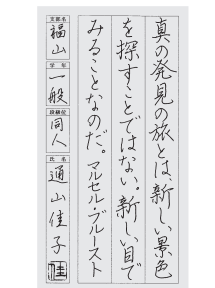 真の発見の旅とは、新しい景色
を探すことではない。新しい目で
みることなのだ。マルセル・プルースト
支部名
福山
学年
一般
段級位
同人
氏名
通山佳子
佳